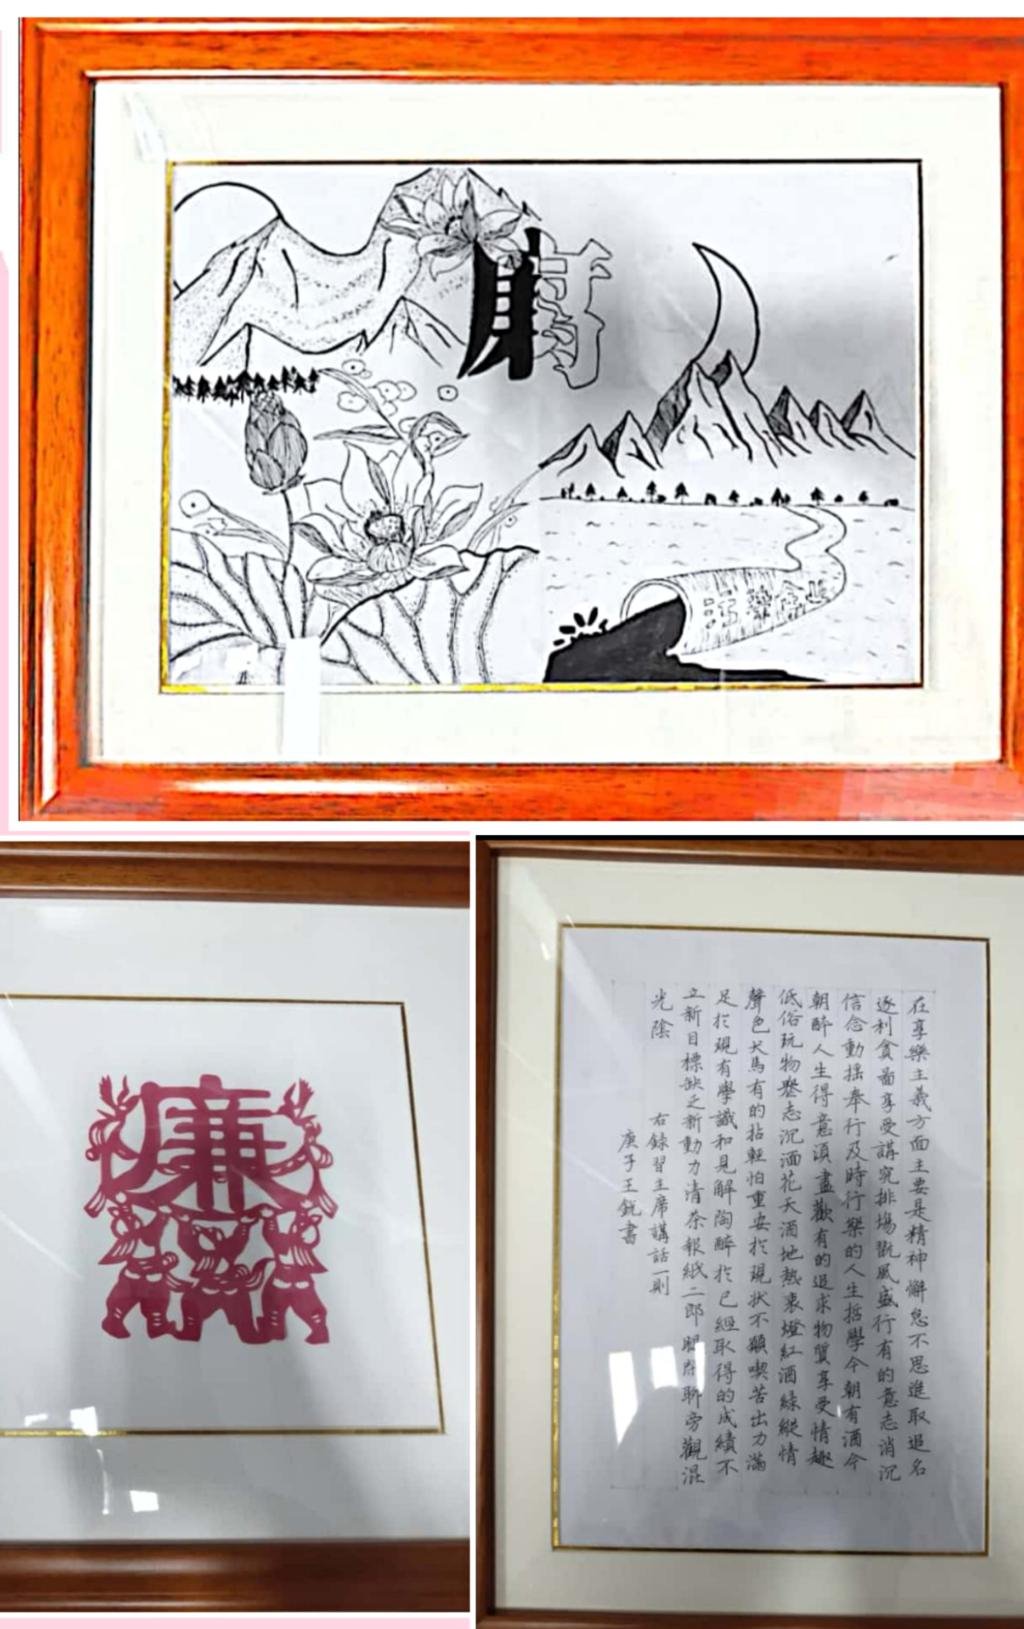 廉
在享樂主義方面主要是精神懈怠不思進取追名
逐利貪圖享受講究排場翫風盛行有的意志消沉
信念動搖奉行及時行樂的人生哲學今朝有酒今
朝醉人生得意須盡歡有的追求物質享受情趣
低俗玩物喪志沉湎花天酒地熱衷燈紅酒綠縱情
聲色犬馬有的拈輕怕重安扵現狀不願喫苦出力滿
足扵現有學識和見解陶醉扵已經取得的成績不
立新目標缺乏新動力清茶報紙二郎腿閑聊旁觀混
光陰 右錄習主席講話一則
庚子王銳書